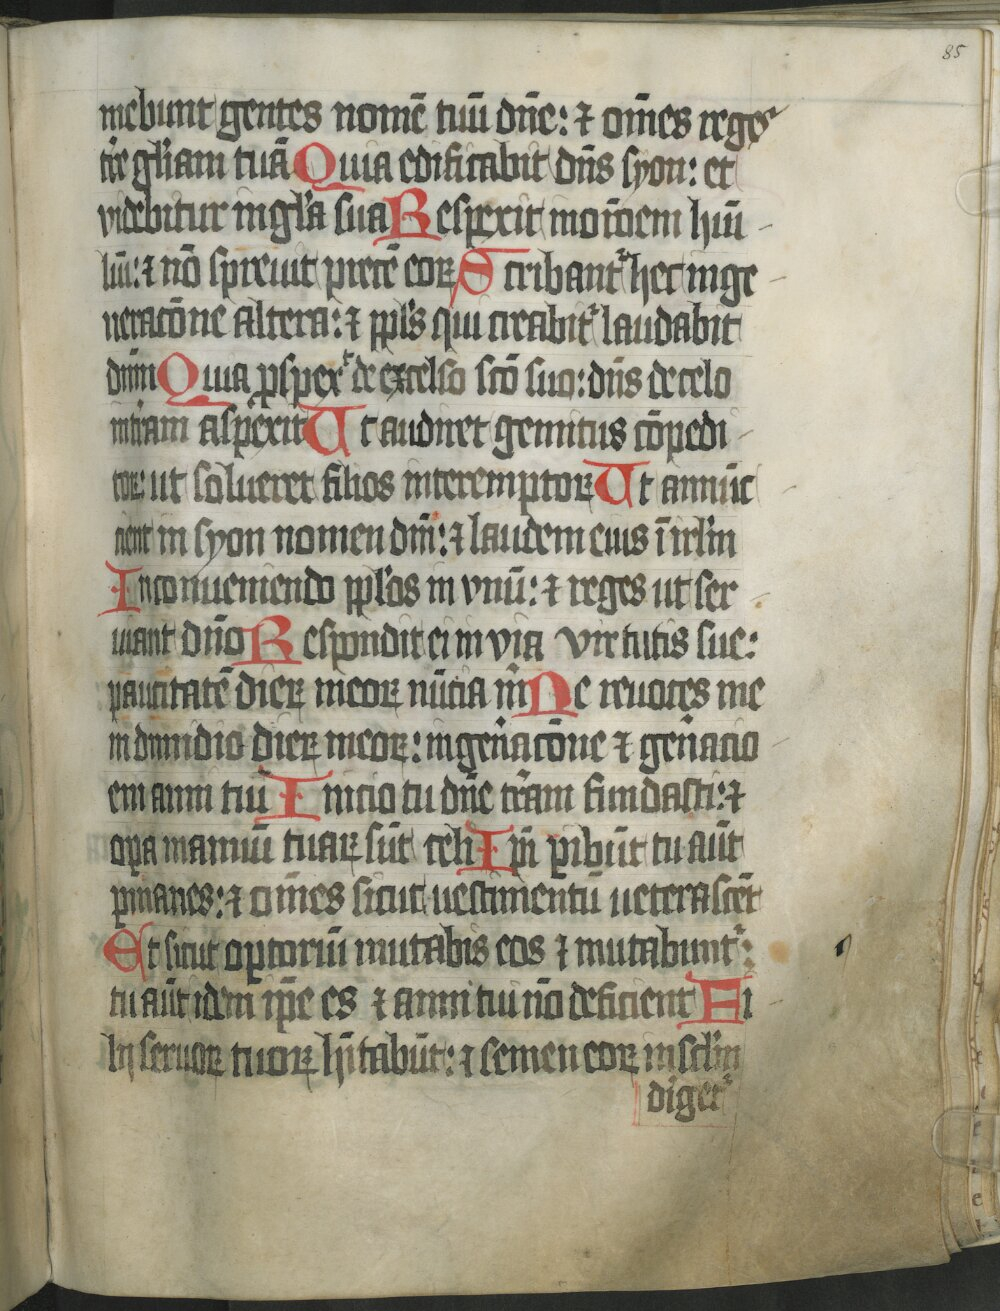 85
mebunt gentes nomē tuū dn̄e: ⁊ om̄es reges
tr̄e gl̄iam tuā Quia edificabit dn̄s syon: et
videbitur in gl̄a sua Respexit in or̄oem hūi
liū: ⁊ nō spreuit precē eoꝝ Scribant᷑ hec in ge
neracōne altera: ⁊ ppl̄s qui creabit᷑ laudabit
dūm Quia ꝓspex᷑ de excelso scō suo: dn̄s de celo
in tr̄am aspexit Ut audiret gemitus cōpedi
toꝝ: ut solueret filios interemptoꝝ Ut annūc
cient in syon nomen dn̄i: ⁊ laudem eius ī irl̄m
In conueniendo ppl̄os in vnū: ⁊ reges ut ser
uiant dn̄o Respondit ei in via virtutis sue:
paucitatē dieꝝ meoꝝ nūcia m̄ Ne reuoces me
in dimidio dieꝝ meoꝝ: in gen̄acōne ⁊ gen̄acio
em anni tui Inicio tu dn̄e tr̄am fundasti: ⁊
oꝑa manuū tuaꝝ sūt celi Ip̄i ꝑibūt tu aūt
ꝑmanes: ⁊ om̄es sicut uestimentū ueterascēt
Et sicut oꝑtoriū mutabis eos ⁊ mutabunt᷑:
tu aūt idem ip̄e es ⁊ anni tui nō deficient Fi
lij seruoꝝ tuoꝝ hītabūt: ⁊ semen eoꝝ in scl̄m
diget᷑